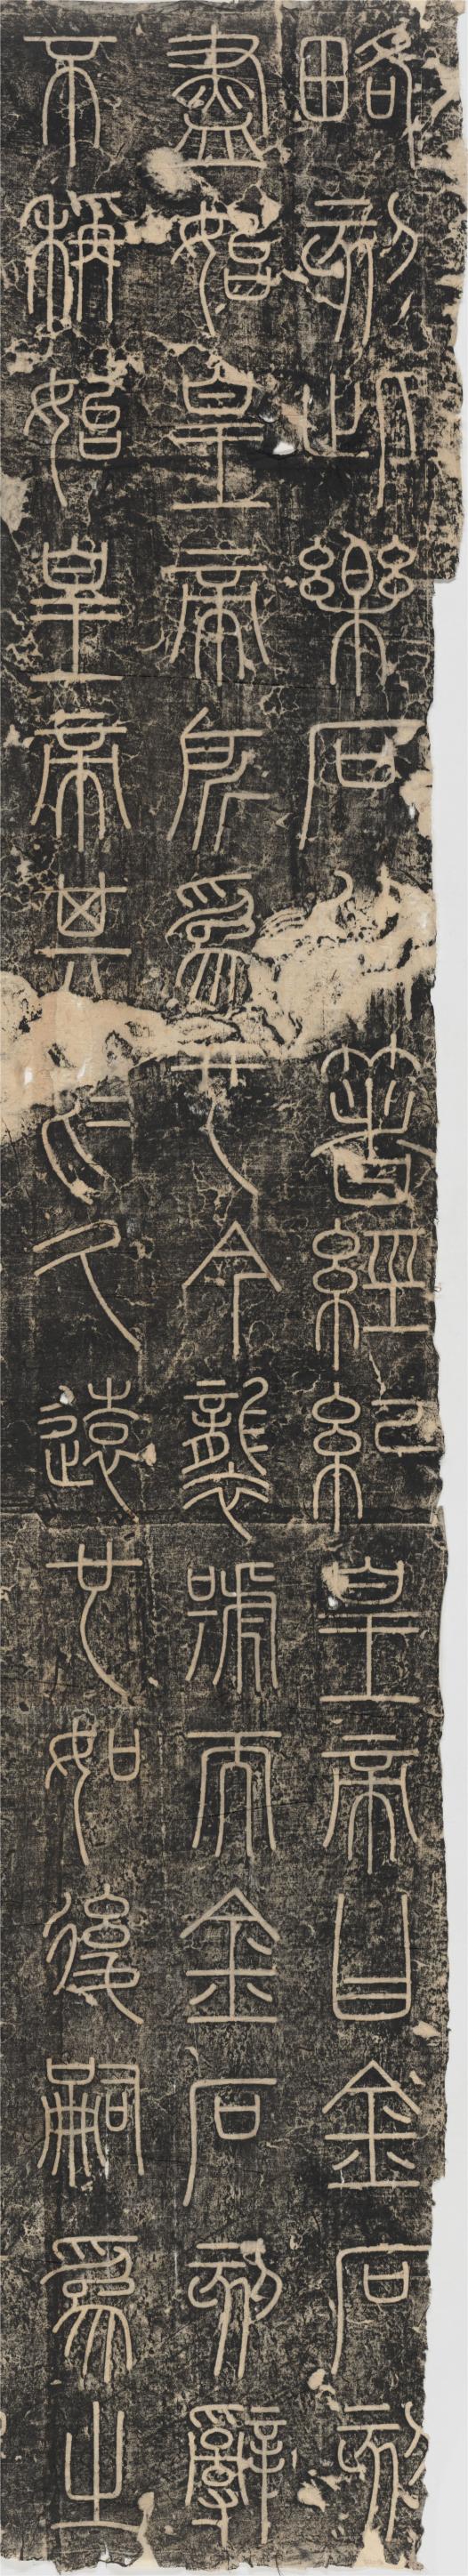 略刻此樂石著經紀皇帝曰金石刻
盡始皇帝所為也今襲號而金石刻辭
不稱始皇帝其於久遠也如後嗣為之